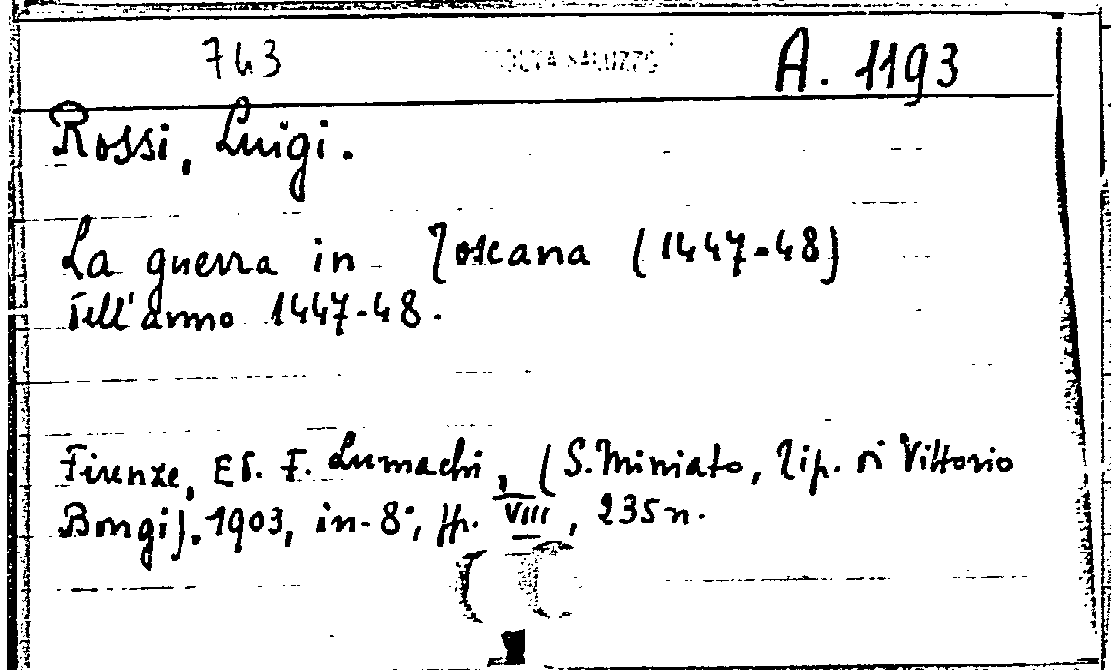 743 SALUZZO A. 1193
Rossi, Luigi.
La guerra in Toscana (1447-48)
Dell'anno 1447-48.
Firenze, Ed. F. Lumachi, (S. Miniato, Tip. di Vittorio
Bongi). 1903, in-8°, pp. VIII, 235 n.